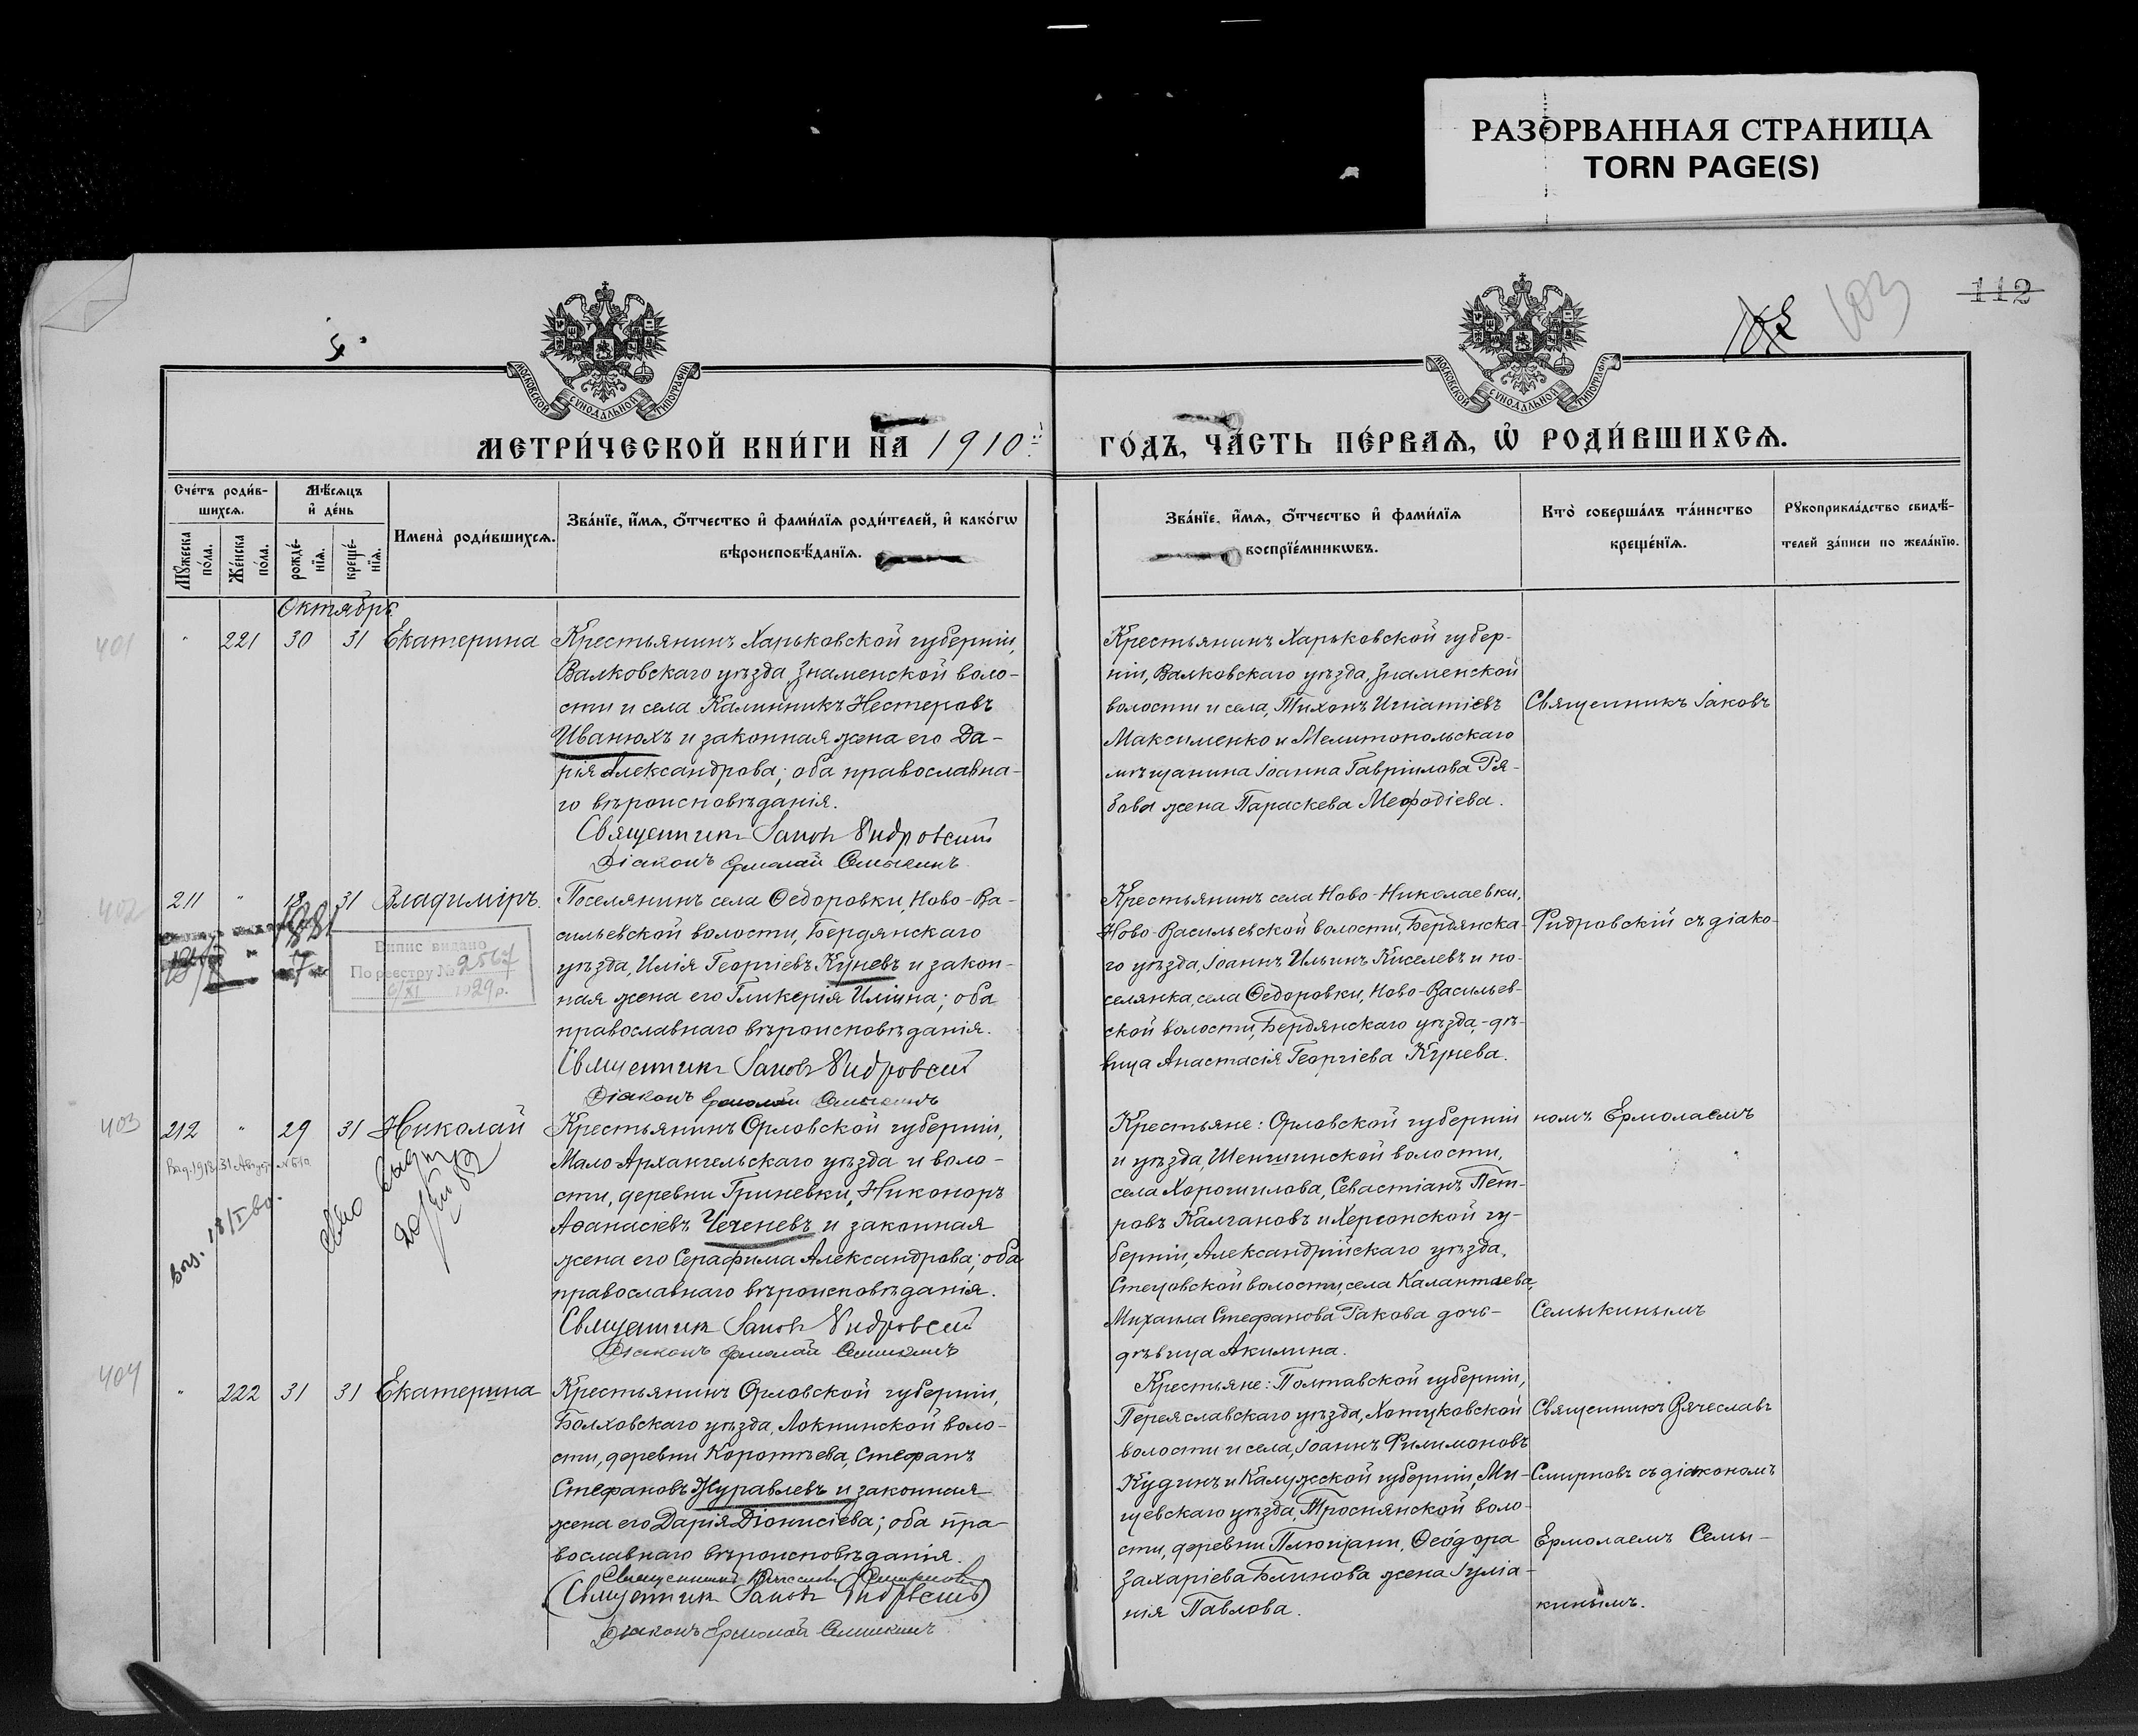 РАЗОРВАННАЯ СТРАНИЦА
TORN PAGE(S)
103
112
МОСКОВСКОЙ СѴНОДАЛЬНОЙ ТИПОГРАФІИ
МОСКОВСКОЙ СѴНОДАЛЬНОЙ ТИПОГРАФІИ
МЕТРИ́ЧЕСКОЙ КНИ́ГИ НА 1910й
ГО́ДЪ, ЧА́СТЬ ПЕ́РВАѦ, Ѡ҆ РОДИ́ВШИХСѦ.
Сче́тъ роди́в-
шихсѧ.
Мꙋ́жеска по́ла.
Же́нска по́ла.
Мѣ́сѧцъ
и҆ де́нь
рожде́-нїѧ.
креще́-нїѧ.
Имена̀ роди́вшихсѧ.
Зва́нїе, и҆́мѧ, ѻ҆́тчество и҆ фами́лїѧ роди́телей, и҆ како́гѡ
вѣроисповѣ́данїѧ.
Зва́нїе, и҆́мѧ, ѻ҆́тчество и҆ фами́лїѧ
воспрїе́мникѡвъ.
Кто̀ соверша́лъ та́инство
креще́нїѧ.
Рꙋкоприкла́дство свидѣ́-
телей за́писи по жела́нїю.
Октябрь
401
" 221 30 31 Екатерина
Крестьянинъ Харьковской губерніи,
Валковскаго уѣзда, Знаменской воло-
сти и села Калинникъ Нестеровъ
Иванюхъ и законная жена его Да-
рія Александрова; оба православна-
го вѣроисповѣданія.
Священникъ Іаковъ Фидровскій
Діаконъ Ермолай Семыкинъ
Крестьянинъ Харьковской губер-
ніи, Валковскаго уѣзда, Знаменской
волости и села, Тихонъ Игнатіевъ
Максименко и Мелитопольскаго
мѣщанина Іоанна Гавріилова Ря-
бова жена Параскева Мефодіева.
Священникъ Іаковъ
402
211 " 18 31 Владиміръ.
1881
Випис видано
По реєстру № 2567
6/XI 1929 р.
Поселянинъ села Ѳедоровки, Ново-Ва-
сильевской волости, Бердянскаго
уѣзда, Илія Георгіевъ Куневъ и закон-
ная жена его Гликерія Иліина; оба
православнаго вѣроисповѣданія.
Священникъ Іаковъ Фидровскій
Діаконъ Ермолай Семыкинъ
Крестьянинъ села Ново-Николаевки,
Ново-Васильевской волости, Бердянска-
го уѣзда, Іоаннъ Ильинъ Киселевъ и по-
селянка, села Ѳедоровки, Ново-Васильев-
ской волости, Бердянскаго уѣзда,-дѣ-
вица Анастасія Георгіева Кунева.
Фидровскій съ діако-
403
212 " 29 31 Николай
18/I
Крестьянинъ Орловской губерніи,
Мало Архангельскаго уѣзда и воло-
сти, деревни Гриневки, Никоноръ
Аѳанасіевъ Чеченевъ и законная
жена его Серафима Александрова; оба
православнаго вѣроисповѣданія.
Священникъ Іаковъ Фидровскій
Діаконъ Ермолай Семыкинъ
Крестьяне: Орловской губерніи
и уѣзда, Шеншинской волости,
села Хорошилова, Севастіанъ Пет-
ровъ Калгановъ и Херсонской гу-
берніи, Александрійскаго уѣзда,
волости, села Калантаева,
Михаила Стефанова Ракова дочь-
дѣвица Акилина.
номъ Ермолаемъ
Семыкинымъ
404
" 222 31 31 Екатерина
Крестьянинъ Орловской губерніи,
Болховскаго уѣзда, Локнинской воло-
сти, деревни Коротѣева, Стефанъ
Стефановъ Журавлевъ и законная
жена его Дарія Діонисіева; оба пра-
вославнаго вѣроисповѣданія.
Священникъ Вячеславъ Смирновъ
(Священникъ Іаковъ Фидровскій)
Діаконъ Ермолай Семыкинъ
Крестьяне: Полтавской губерніи,
Переяславскаго уѣзда, Хоцковской
волости и села, Іоаннъ Филимоновъ
Кудинъ и Калужской губерніи, Ми-
щевскаго уѣзда, Троснянской воло-
сти, деревни Плющани, Ѳеодора
Захаріева Блинова жена Іуліа-
нія Павлова.
Священникъ Вячеславъ
Смирновъ съ діакономъ
Ермолаемъ Семы-
кинымъ.